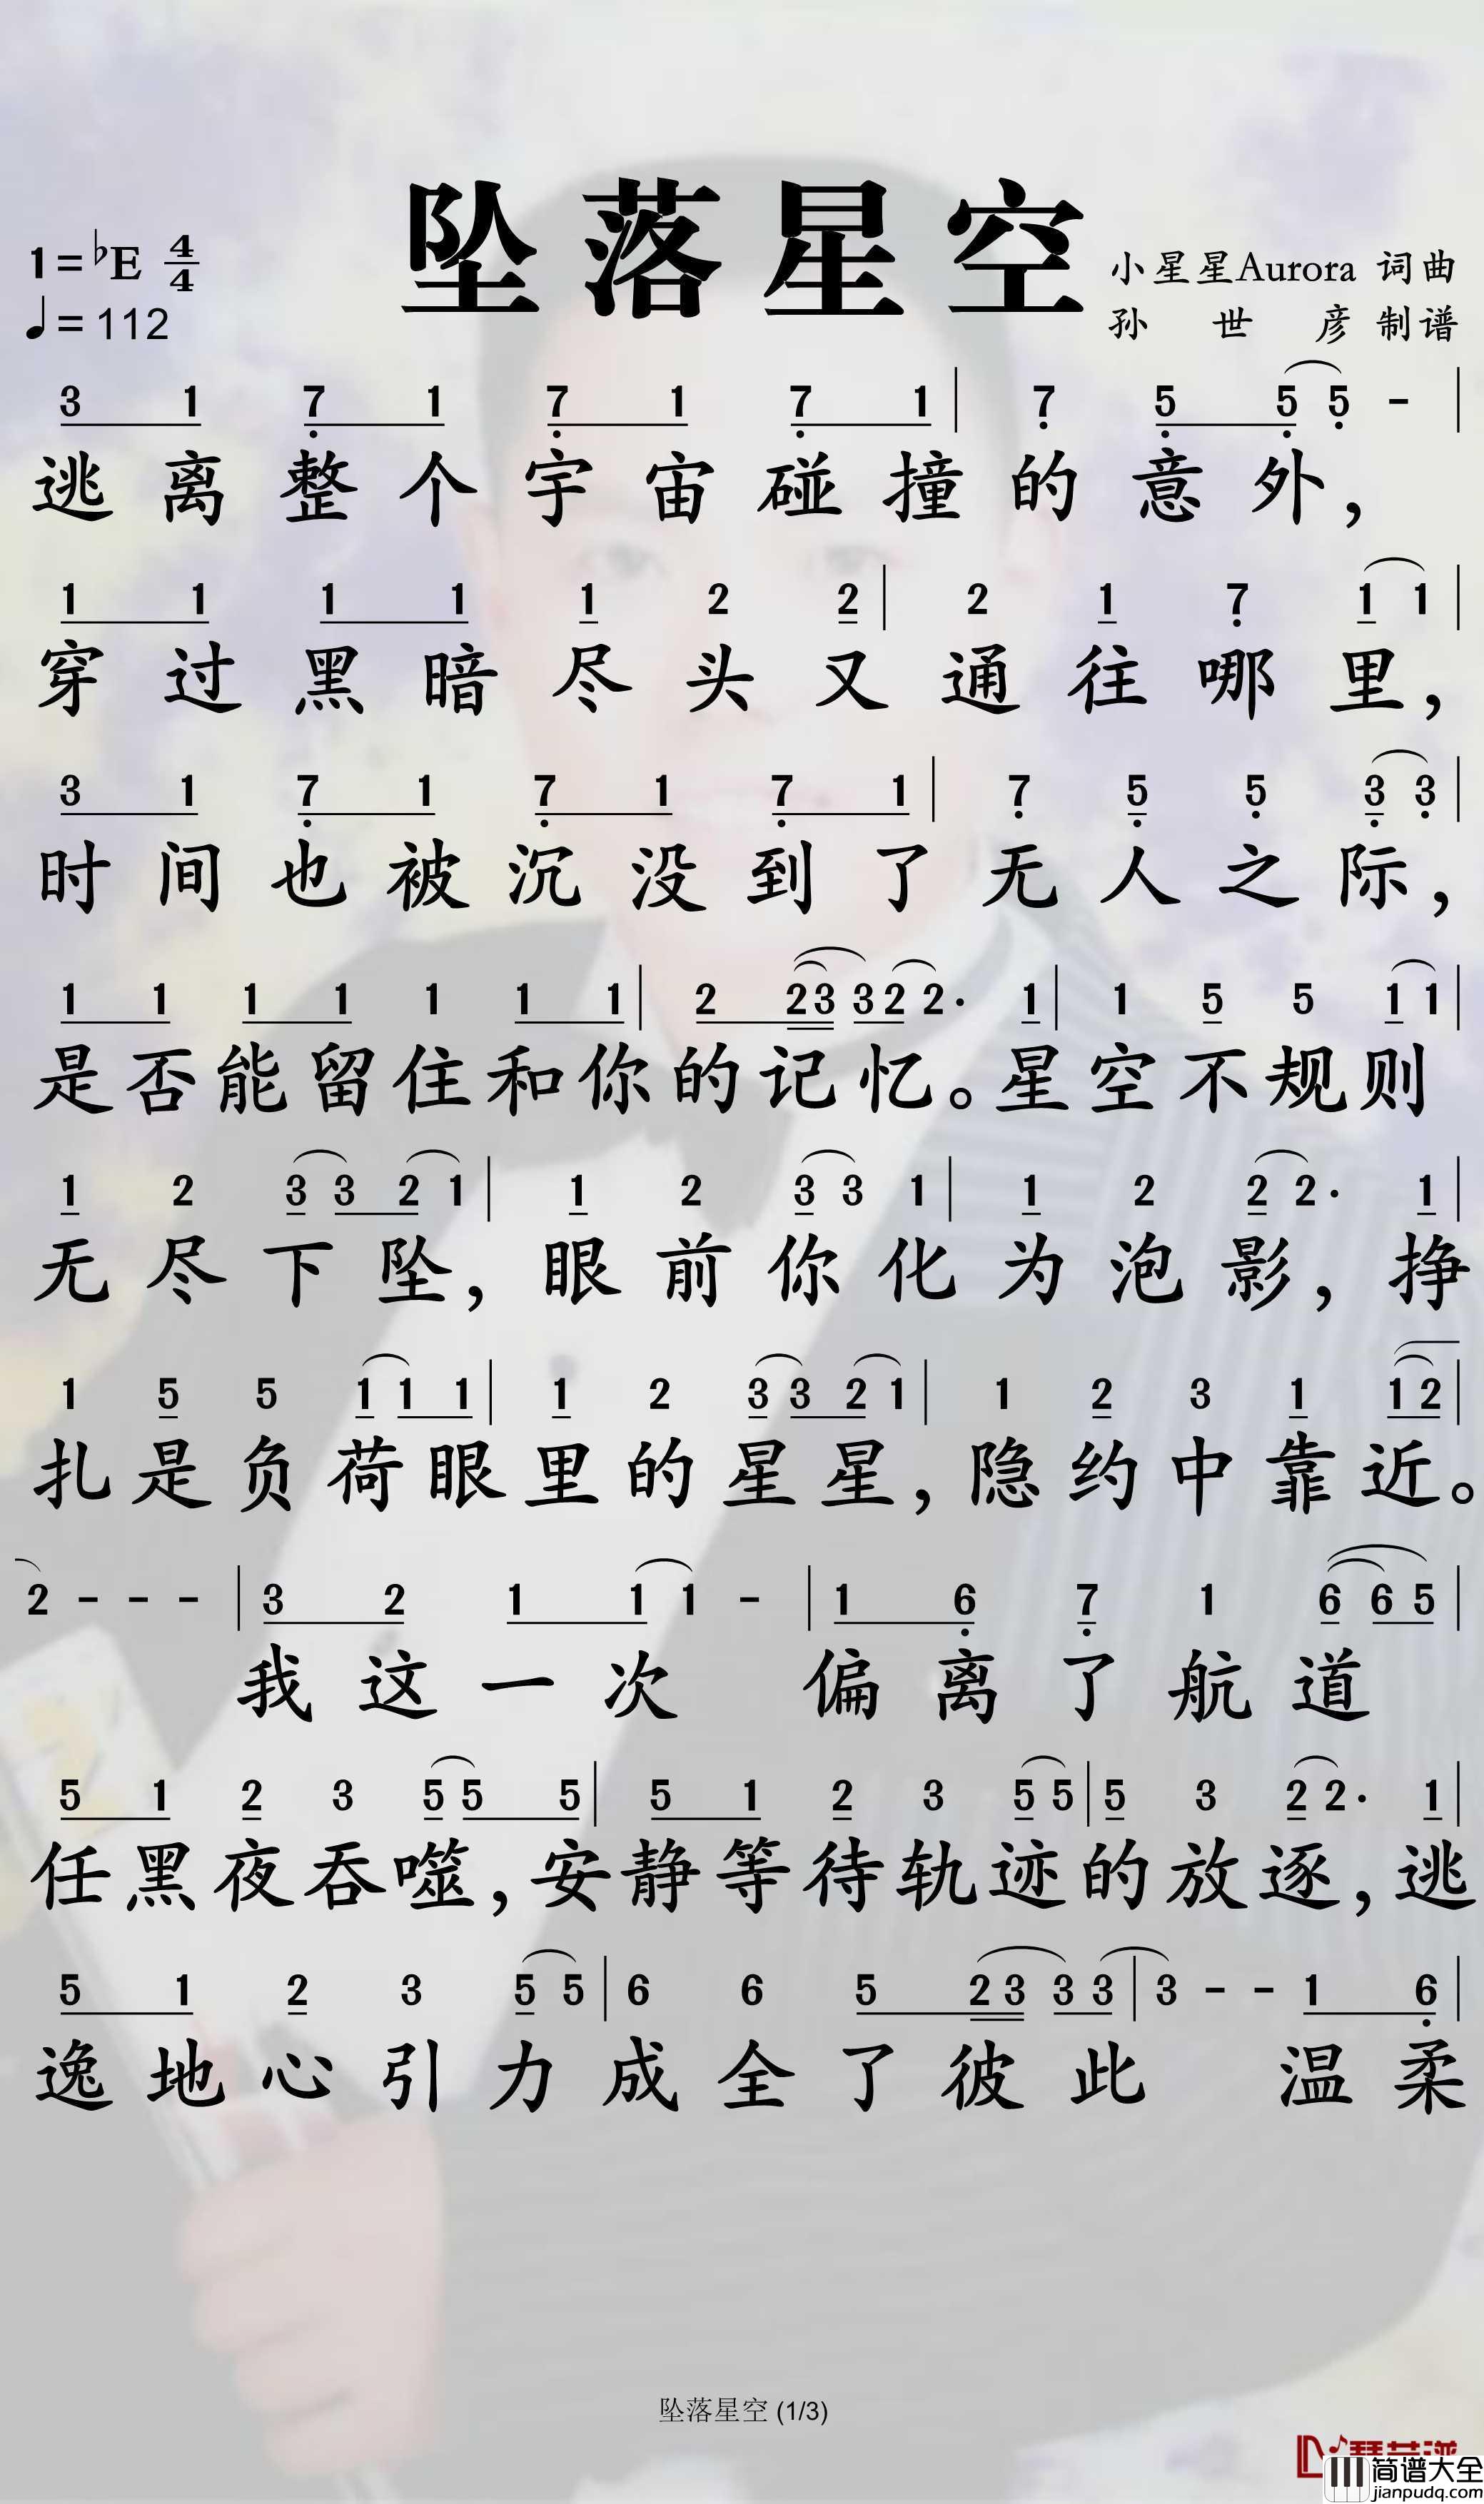 坠落星空
1=♭E 4/4
♩=112
小星星Aurora 词曲
孙世彦制谱
3 1 7 1 7 1 7 1 | 7 5 5 5 - |
逃离整个宇宙碰撞的意外，
1 1 1 1 1 2 2 | 2 1 7 1 1 |
穿过黑暗尽头又通往哪里，
3 1 7 1 7 1 7 1 | 7 5 5 3 3 |
时间也被沉没到了无人之际，
1 1 1 1 1 1 1 | 2 2 3 3 2 2· 1 | 1 5 5 1 1 |
是否能留住和你的记忆。星空不规则
1 2 3 3 2 1 | 1 2 3 3 1 | 1 2 2 2· 1 |
无尽下坠，眼前你化为泡影，挣
1 5 5 1 1 1 | 1 2 3 3 2 1 | 1 2 3 1 1 2 |
扎是负荷眼里的星星，隐约中靠近。
2 - - - | 3 2 1 1 1 - | 1 6 7 1 6 6 5 |
我这一次 偏离了航道
5 1 2 3 5 5 5 | 5 1 2 3 5 5 | 5 3 2 2· 1 |
任黑夜吞噬，安静等待轨迹的放逐，逃
5 1 2 3 5 5 | 6 6 5 2 3 3 3 | 3 - - 1 6 |
逸地心引力成全了彼此 温柔
坠落星空 (1/3)
简谱大全
jianpudq.com